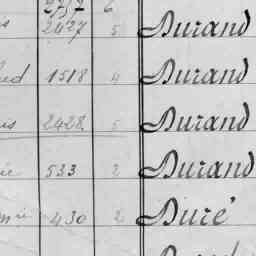 2427 5 Durand
1518 4 Durand
2428 5 Durand
533 2 Durand
430 2 Duré